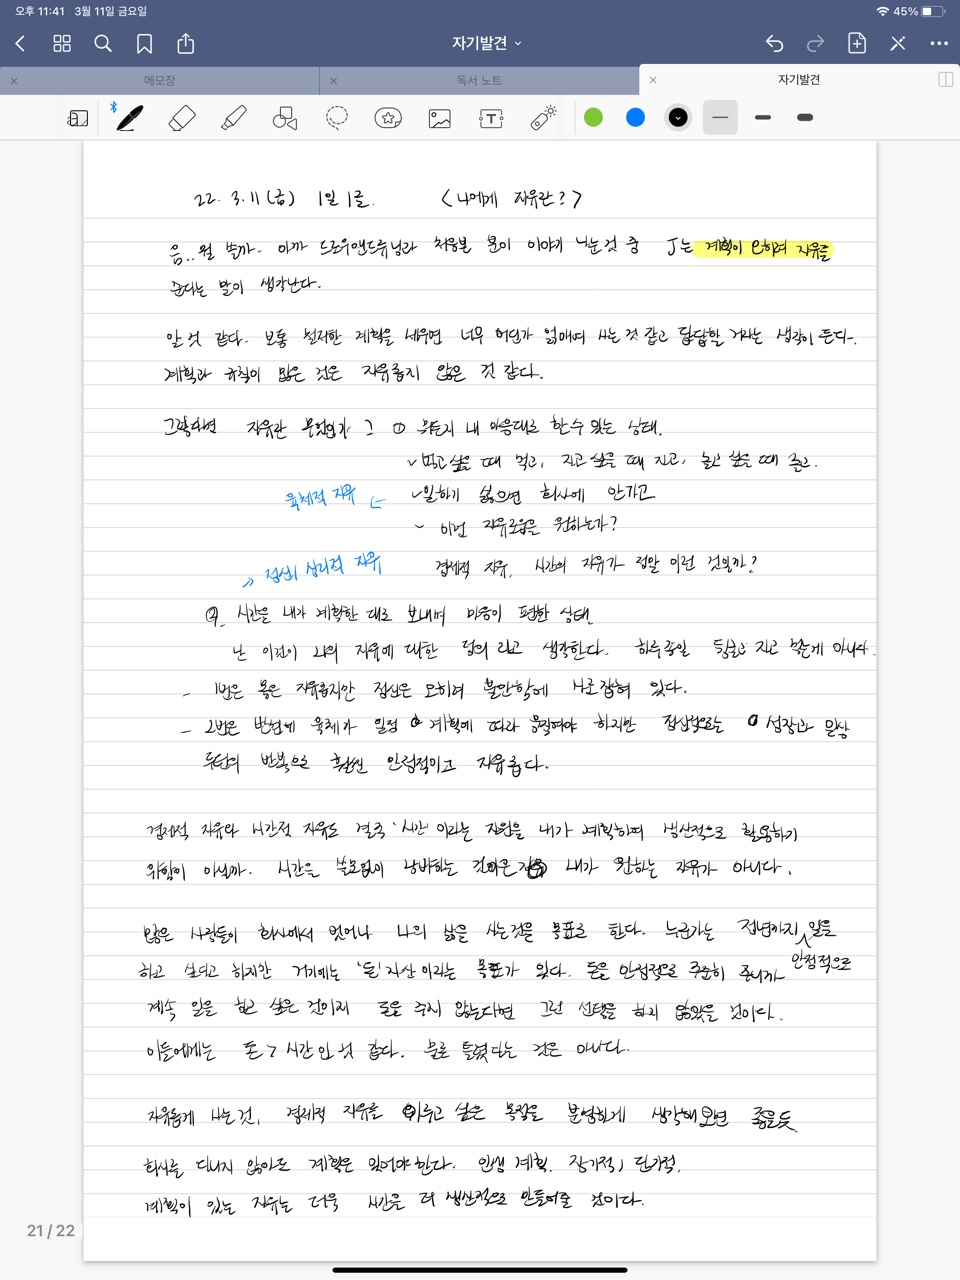 오후 11:41 3월 11일 금요일
45%
자기발견
메모장
독서 노트
자기발견
22. 3. 11 (금) 1일 1글. <나에게 자유란?>
음.. 뭘 쓸까. 아까 드로우앤드류님과 처음본 분이 이야기 나눈 것 중 J는 계획이 오히려 자유를
준다는 말이 생각난다.
맞 것 같다. 보통 철저한 계획을 세우면 너무 어딘가 얽매여 사는 것 같고 답답할 거라는 생각이 든다.
계획과 규칙이 많은 것은 자유롭지 않은 것 같다.
그렇다면 자유란 무엇인가? ① 뭐든지 내 마음대로 할 수 있는 상태.
먹고 싶을 때 먹고, 자고 싶을 때 자고, 놀고 싶을 때 놀고.
육체적 자유 일하기 싫으면 회사에 안가고
이런 자유로움을 원하는가?
정신, 심리적 자유 경제적 자유, 시간의 자유가 정말 이런 것일까?
②. 시간을 내가 계획한 대로 보내며 마음이 편한 상태
난 이것이 나의 자유에 대한 정의라고 생각한다. 하루종일 뒹굴고 자고 하는게 아니라.
- 1번은 몸은 자유롭지만 정신은 오히려 불안함에 사로잡혀 있다.
- 2번은 반면에 육체가 일정 계획에 따라 움직여야 하지만 정신적으로는 성장과 일상
루틴의 반복으로 훨씬 안정적이고 자유롭다.
경제적 자유와 시간적 자유도 결국 '시간'이라는 자원을 내가 계획하며 생산적으로 활용하기
위함이 아닐까. 시간을 쓸모없이 낭비하는 것은 내가 원하는 자유가 아니다.
많은 사람들이 회사에서 벗어나 나의 삶을 사는것을 목표로 한다. 누군가는 정년까지 일을
하고 싶다고 하지만 거기에는 '돈' 자산이라는 목표가 있다. 돈을 안정적으로 꾸준히 주니까 안정적으로
계속 일을 하고 싶은 것이지 돈을 주지 않는다면 그런 선택을 하지 않았을 것이다.
이들에게는 돈 > 시간인 것 같다. 물론 틀렸다는 것은 아니다.
자유롭게 사는 것, 경제적 자유를 이루고 싶은 목적을 분명하게 생각해보면 좋을듯
회사를 다니지 않아도 계획은 있어야 한다. 인생 계획, 장기적, 단기적.
계획이 있는 자유는 더욱 시간을 더 생산적으로 만들어줄 것이다.
21 / 22